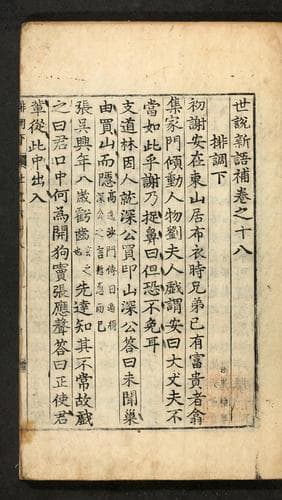 世說新語補卷之十八
排調下
初謝安在東山居布衣時兄弟已有富貴者翕
集家門傾動人物劉夫人戲謂安曰大丈夫不
當如此乎謝乃捉鼻曰但恐不免耳
支道林因人就深公買印山深公答曰未聞巢
由買山而隱
張吳興年八歲虧齒先達知其不常故戲
之曰君口中何為開狗竇張應聲答曰正使君
輩從此中出入